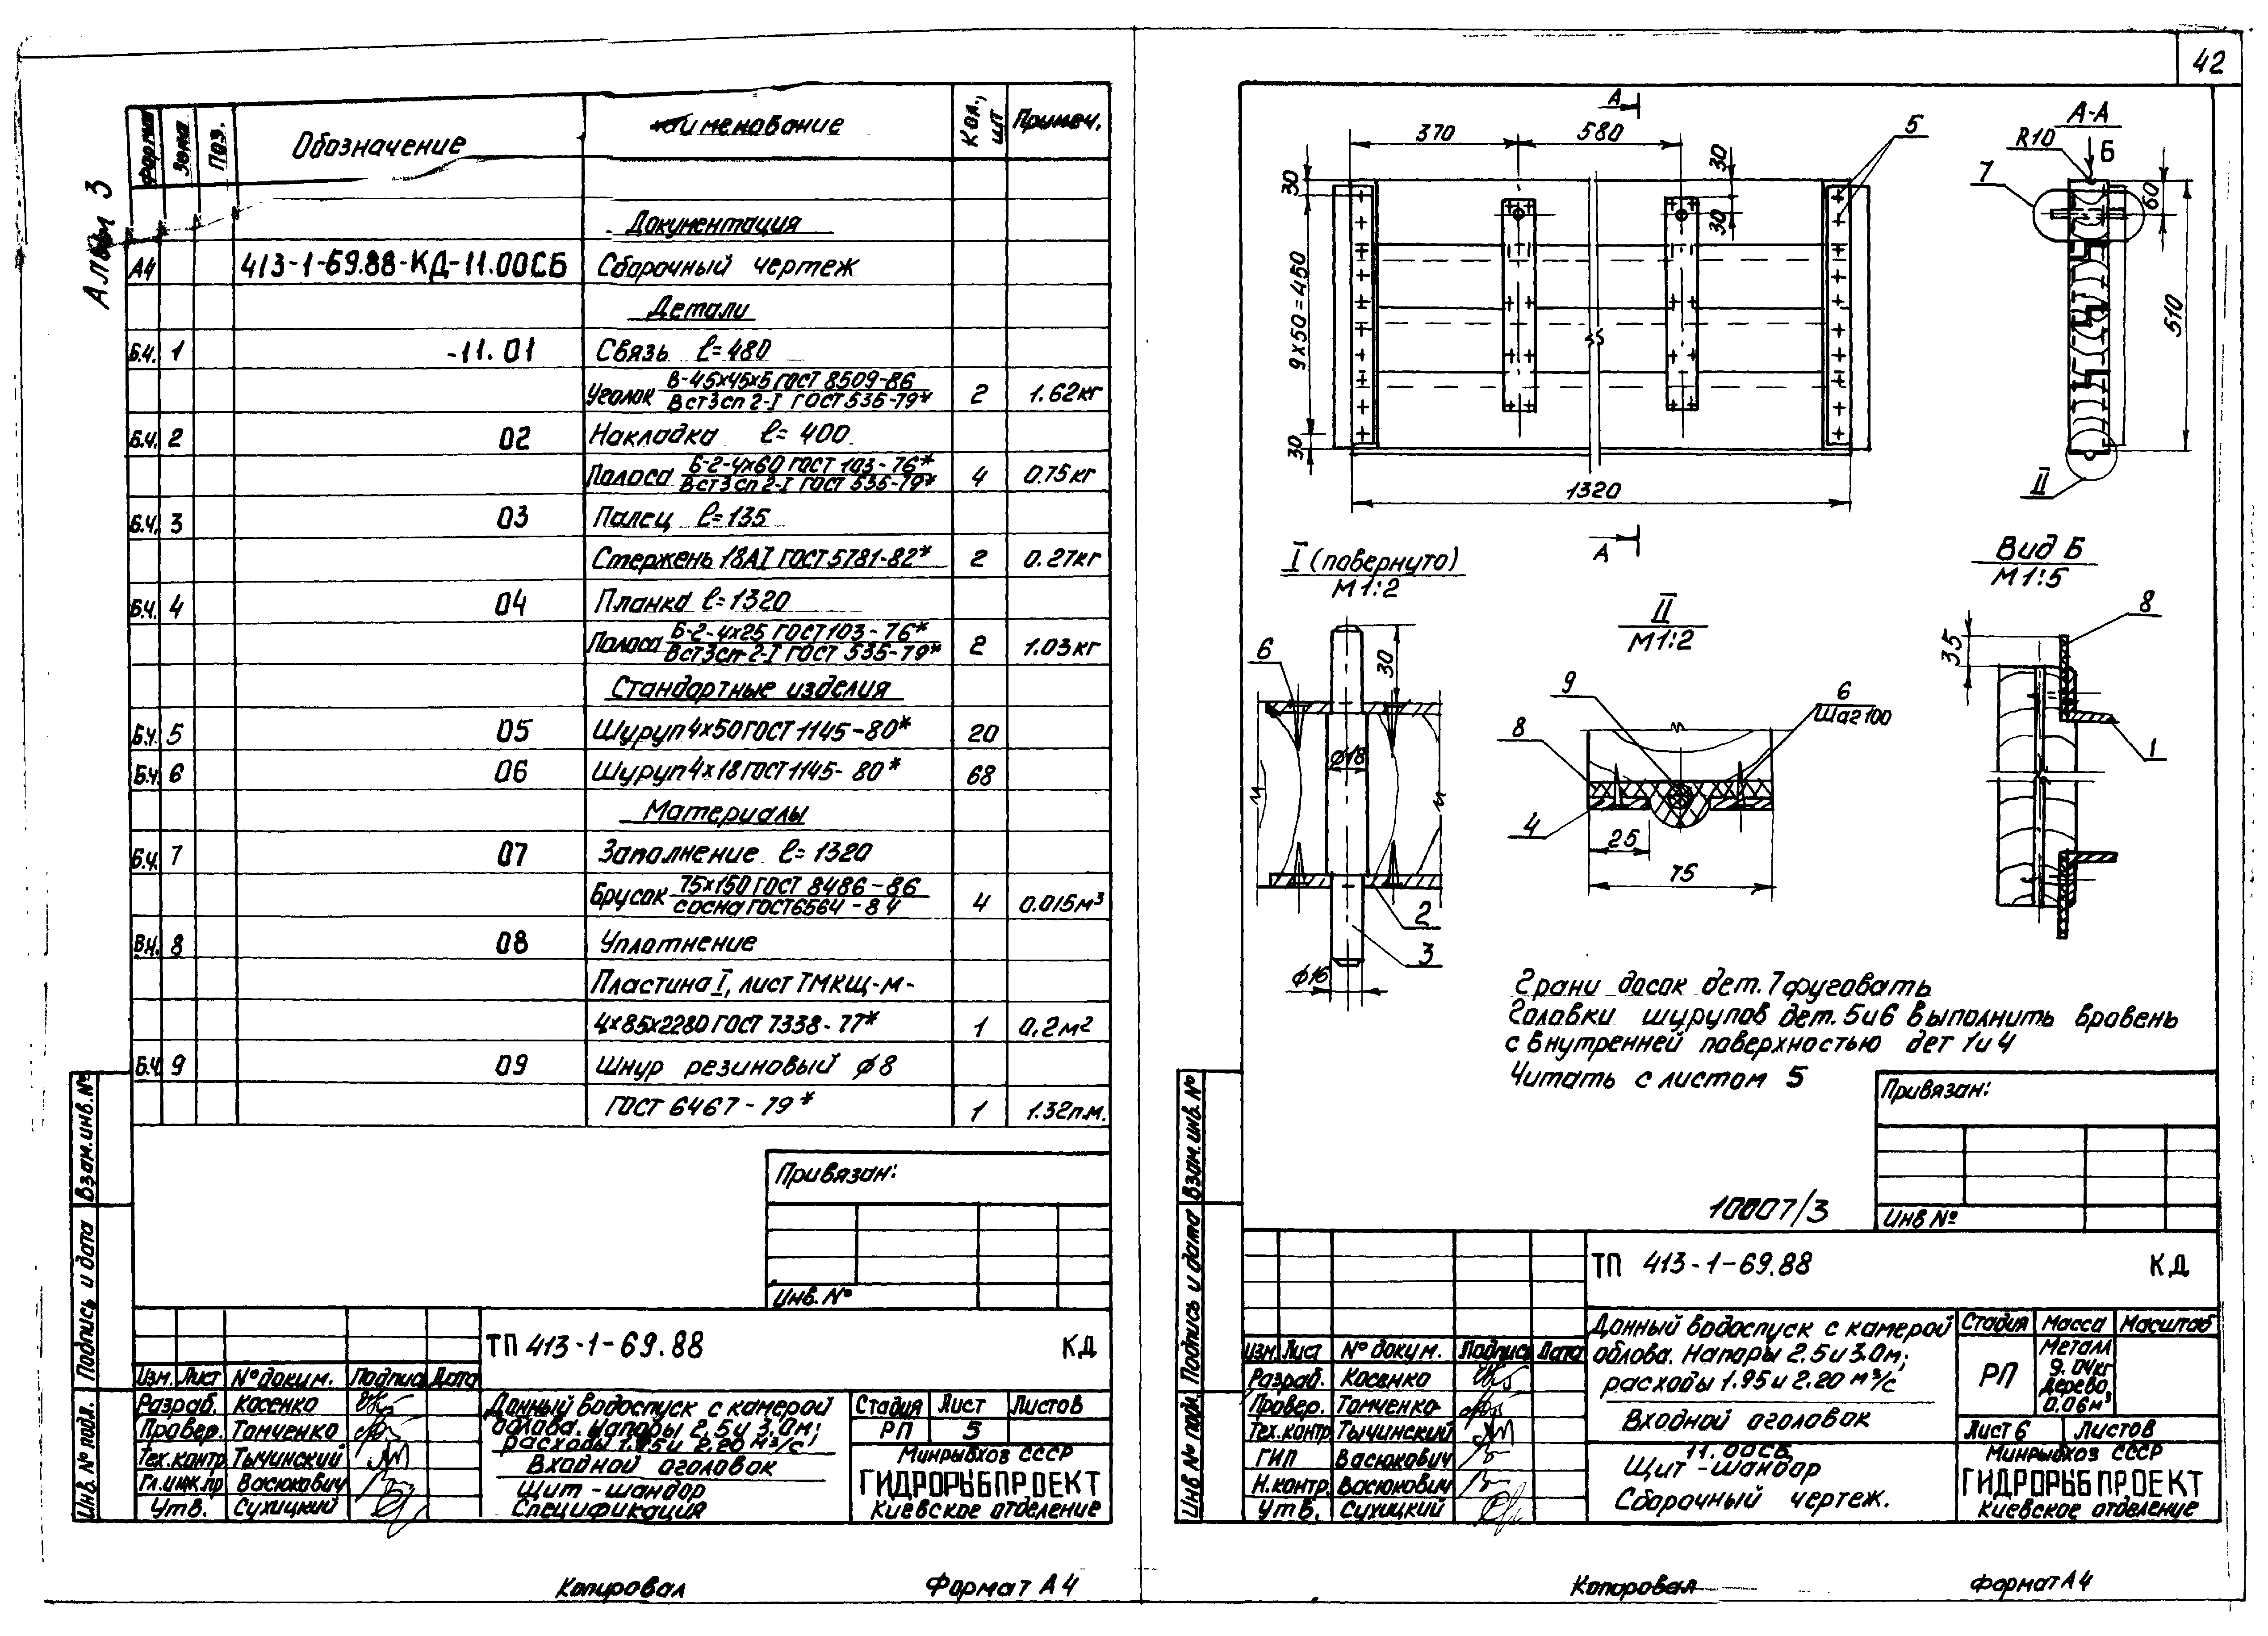 42
Альбом 3
Формат Зона Поз. Обозначение Наименование Кол., шт Примеч.
Документация
А4 413-1-69.88-КД-11.00СБ Сборочный чертеж
Детали
Б.Ч. 1 -11.01 Связь ℓ=480
Уголок В-45х45х5 ГОСТ 8509-86 / Вст3сп2-I ГОСТ 535-79* 2 1.62кг
Б.Ч. 2 02 Накладка ℓ=400
Полоса Б-2-4х60 ГОСТ 103-76* / Вст3сп2-I ГОСТ 535-79* 4 0.75кг
Б.Ч. 3 03 Палец ℓ=135
Стержень 18АI ГОСТ 5781-82* 2 0.27кг
Б.Ч. 4 04 Планка ℓ=1320
Полоса Б-2-4х25 ГОСТ 103-76* / Вст3сп-2-I ГОСТ 535-79* 2 1.03кг
Стандартные изделия
Б.Ч. 5 05 Шуруп 4х50 ГОСТ 1145-80* 20
Б.Ч. 6 06 Шуруп 4х18 ГОСТ 1145-80* 68
Материалы
Б.Ч. 7 07 Заполнение ℓ=1320
Брусок 75х150 ГОСТ 8486-86 / сосна ГОСТ 6564-84 4 0.015м³
В.Ч. 8 08 Уплотнение
Пластина I, лист ТМКЩ-М-
4х85х2280 ГОСТ 7338-77* 1 0.2м²
Б.Ч. 9 09 Шнур резиновый ϕ8
ГОСТ 6467-79* 1 1.32п.м.
Привязан:
Инв. №
Взам.инв.№
Подпись и дата
Инв. № подл.
ТП 413-1-69.88 КД
Изм. Лист № докум. Подпись Дата
Разраб. Косенко
Провер. Томченко
Тех.контр Тычинский
Гл.инж.пр Васюкович
Утв. Сухицкий
Донный водоспуск с камерой
облова. Напоры 2.5 и 3.0м;
расходы 1.95 и 2.20 м³/с
Входной оголовок
Щит-шандор
Спецификация
Стадия Лист Листов
РП 5
Минрыбхоз СССР
ГИДРОРЫБПРОЕКТ
Киевское отделение
Копировал Формат А4
А
370 580 5
30 30 30
9х50=450
30
1320
А
А-А
R10 Б
7 60
510
II
I (повернуто)
М 1:2
6 30
ϕ18
2
3
ϕ16
II
М1:2
9 6
Шаг 100
8
4
25
75
Вид Б
М 1:5
8
35
1
Грани досок дет. 7 фуговать
Головки шурупов дет. 5 и 6 выполнить вровень
с внутренней поверхностью дет 1 и 4
Читать с листом 5
Привязан:
Инв №
10007/3
Взам.инв.№
Подпись и дата
Инв № подл.
ТП 413-1-69.88 КД
Изм. Лист № докум. Подпись Дата
Разраб. Косенко
Провер. Томченко
Тех.контр Тычинский
ГИП Васюкович
Н.контр. Васюкович
Утв. Сухицкий
Донный водоспуск с камерой
облова. Напоры 2.5 и 3.0м;
расходы 1.95 и 2.20 м³/с
Входной оголовок
11.00СБ
Щит-шандор
Сборочный чертеж.
Стадия Масса Масштаб
РП Металл 9.04кг Дерево 0.06м³
Лист 6 Листов
Минрыбхоз СССР
ГИДРОРЫБПРОЕКТ
Киевское отделение
Копировал Формат А4